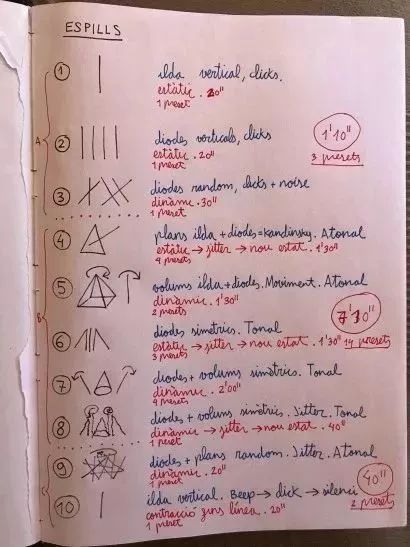 ESPILLS
A
1 ilda vertical, clicks.
estàtic. 20"
1 preset
2 diodes verticals, clicks
estàtic. 20"
1 preset
1'10"
3 presets
3 diodes random, clicks + noise
dinàmic. 30"
1 preset
B
4 plans ilda + diodes=Kandinsky. Atonal
estàtic → jitter → nou estat. 1'30"
4 presets
5 volums ilda + diodes. Moviment. Atonal
dinàmic. 1'30"
2 presets
7'30"
14 presets
6 diodes simètrics. Tonal
estàtic → jitter → nou estat. 1'30"
3 presets
7 diodes + volums simètrics. Tonal
dinàmic. 2'00"
4 presets
8 diodes + volums simètric. Jitter. Tonal
dinàmic → jitter → nou estat. 40"
1 preset
C
9 diodes + plans random. Jitter. Atonal
dinàmic. 20"
1 preset
40"
2 presets
10 ilda vertical. Beep → click → silenci
contracció fins línea. 20"
1 preset